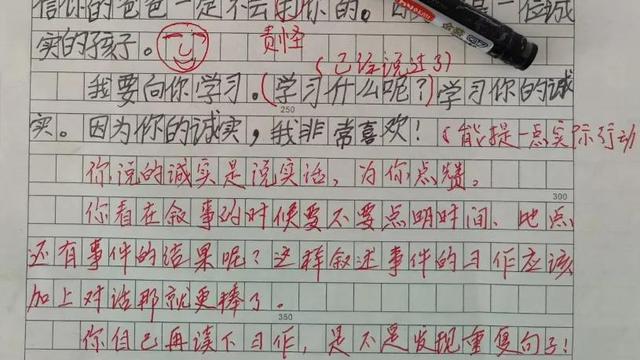 信你的爸爸一定不会
实的孩子。
责怪
(已经说过了)
我要向你学习。(学习什么呢?)学习你的诚
实。因为你的诚实,我非常喜欢!(能提一点实际行动
250
你说的诚实是说实话,为你点赞。
300
你看在叙事的时候要不要点明时间、地点
还有事件的结果呢?这样叙述事件的习作应该
加上对话那就更棒了。
350
你自己再读下习作,是不是发现重复句子!